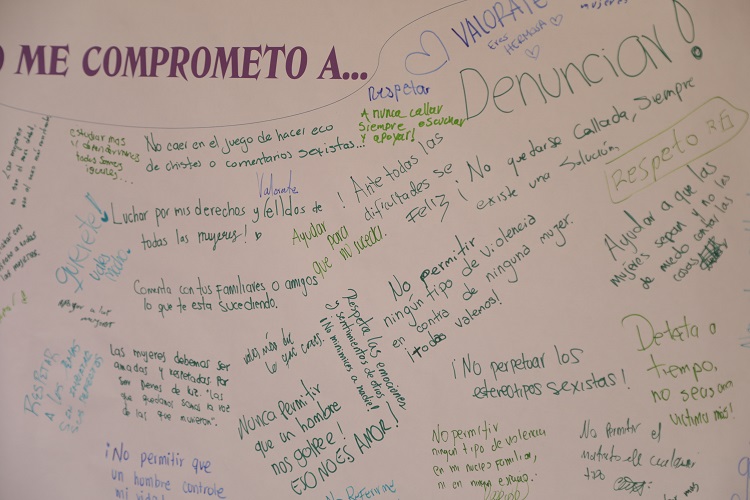 O ME COMPROMETO A...
VALORATE
Eres
HERMOSA
mujeres
Denunciar!
Respetar
A nunca callar
Siempre escuchar
y apoyar!
estudiar mas
todas somos
iguales...
No caer en el juego de hacer eco
de chistes o comentarios sexistas..!
¡Ante todas las
dificultades se
Feliz!
¡No quedarse Callada, siempre
existe una solución
Respeto
Valorate
Luchar por mis derechos y
todas las mujeres!
Ayudar
para
que mi
QUIERETE!
Ayudar a que las
mujeres sepan y no les
de miedo contar las
cosas
Comenta con tus familiares o amigos
lo que te esta sucediendo.
No permitir
ningún tipo de violencia
en contra de ninguna mujer.
¡todas valemos!
Respeta las emociones
y sentimientos de otros
¡No minimices a nadie!
vales más de
lo que crees!
Las mujeres debemos ser
amadas y respetadas por
ser seres de luz. "Las
que quedamos somos la voz
de las que murieron".
RESPETAR
A LAS
Nunca Permitir
que un hombre
nos golpee!
ESO NO ES AMOR!
¡No perpetuar los
estereotipos sexistas!
Detecta a
tiempo,
no seas una
víctima más!
¡No permitir que
un hombre controle
mi vida!
No permitir
ningún tipo de violencia
en mi nucleo familiar,
ni en ningun
No Permitir el
maltrato de cualquier
tipo